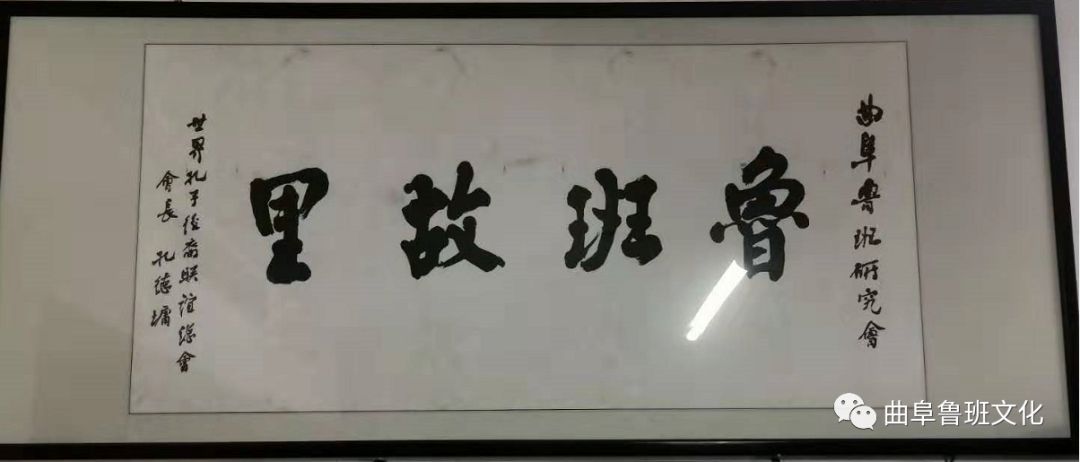 曲阜魯班研究會
魯班故里
世界孔子后裔联谊总會
會長 孔德墉
曲阜鲁班文化